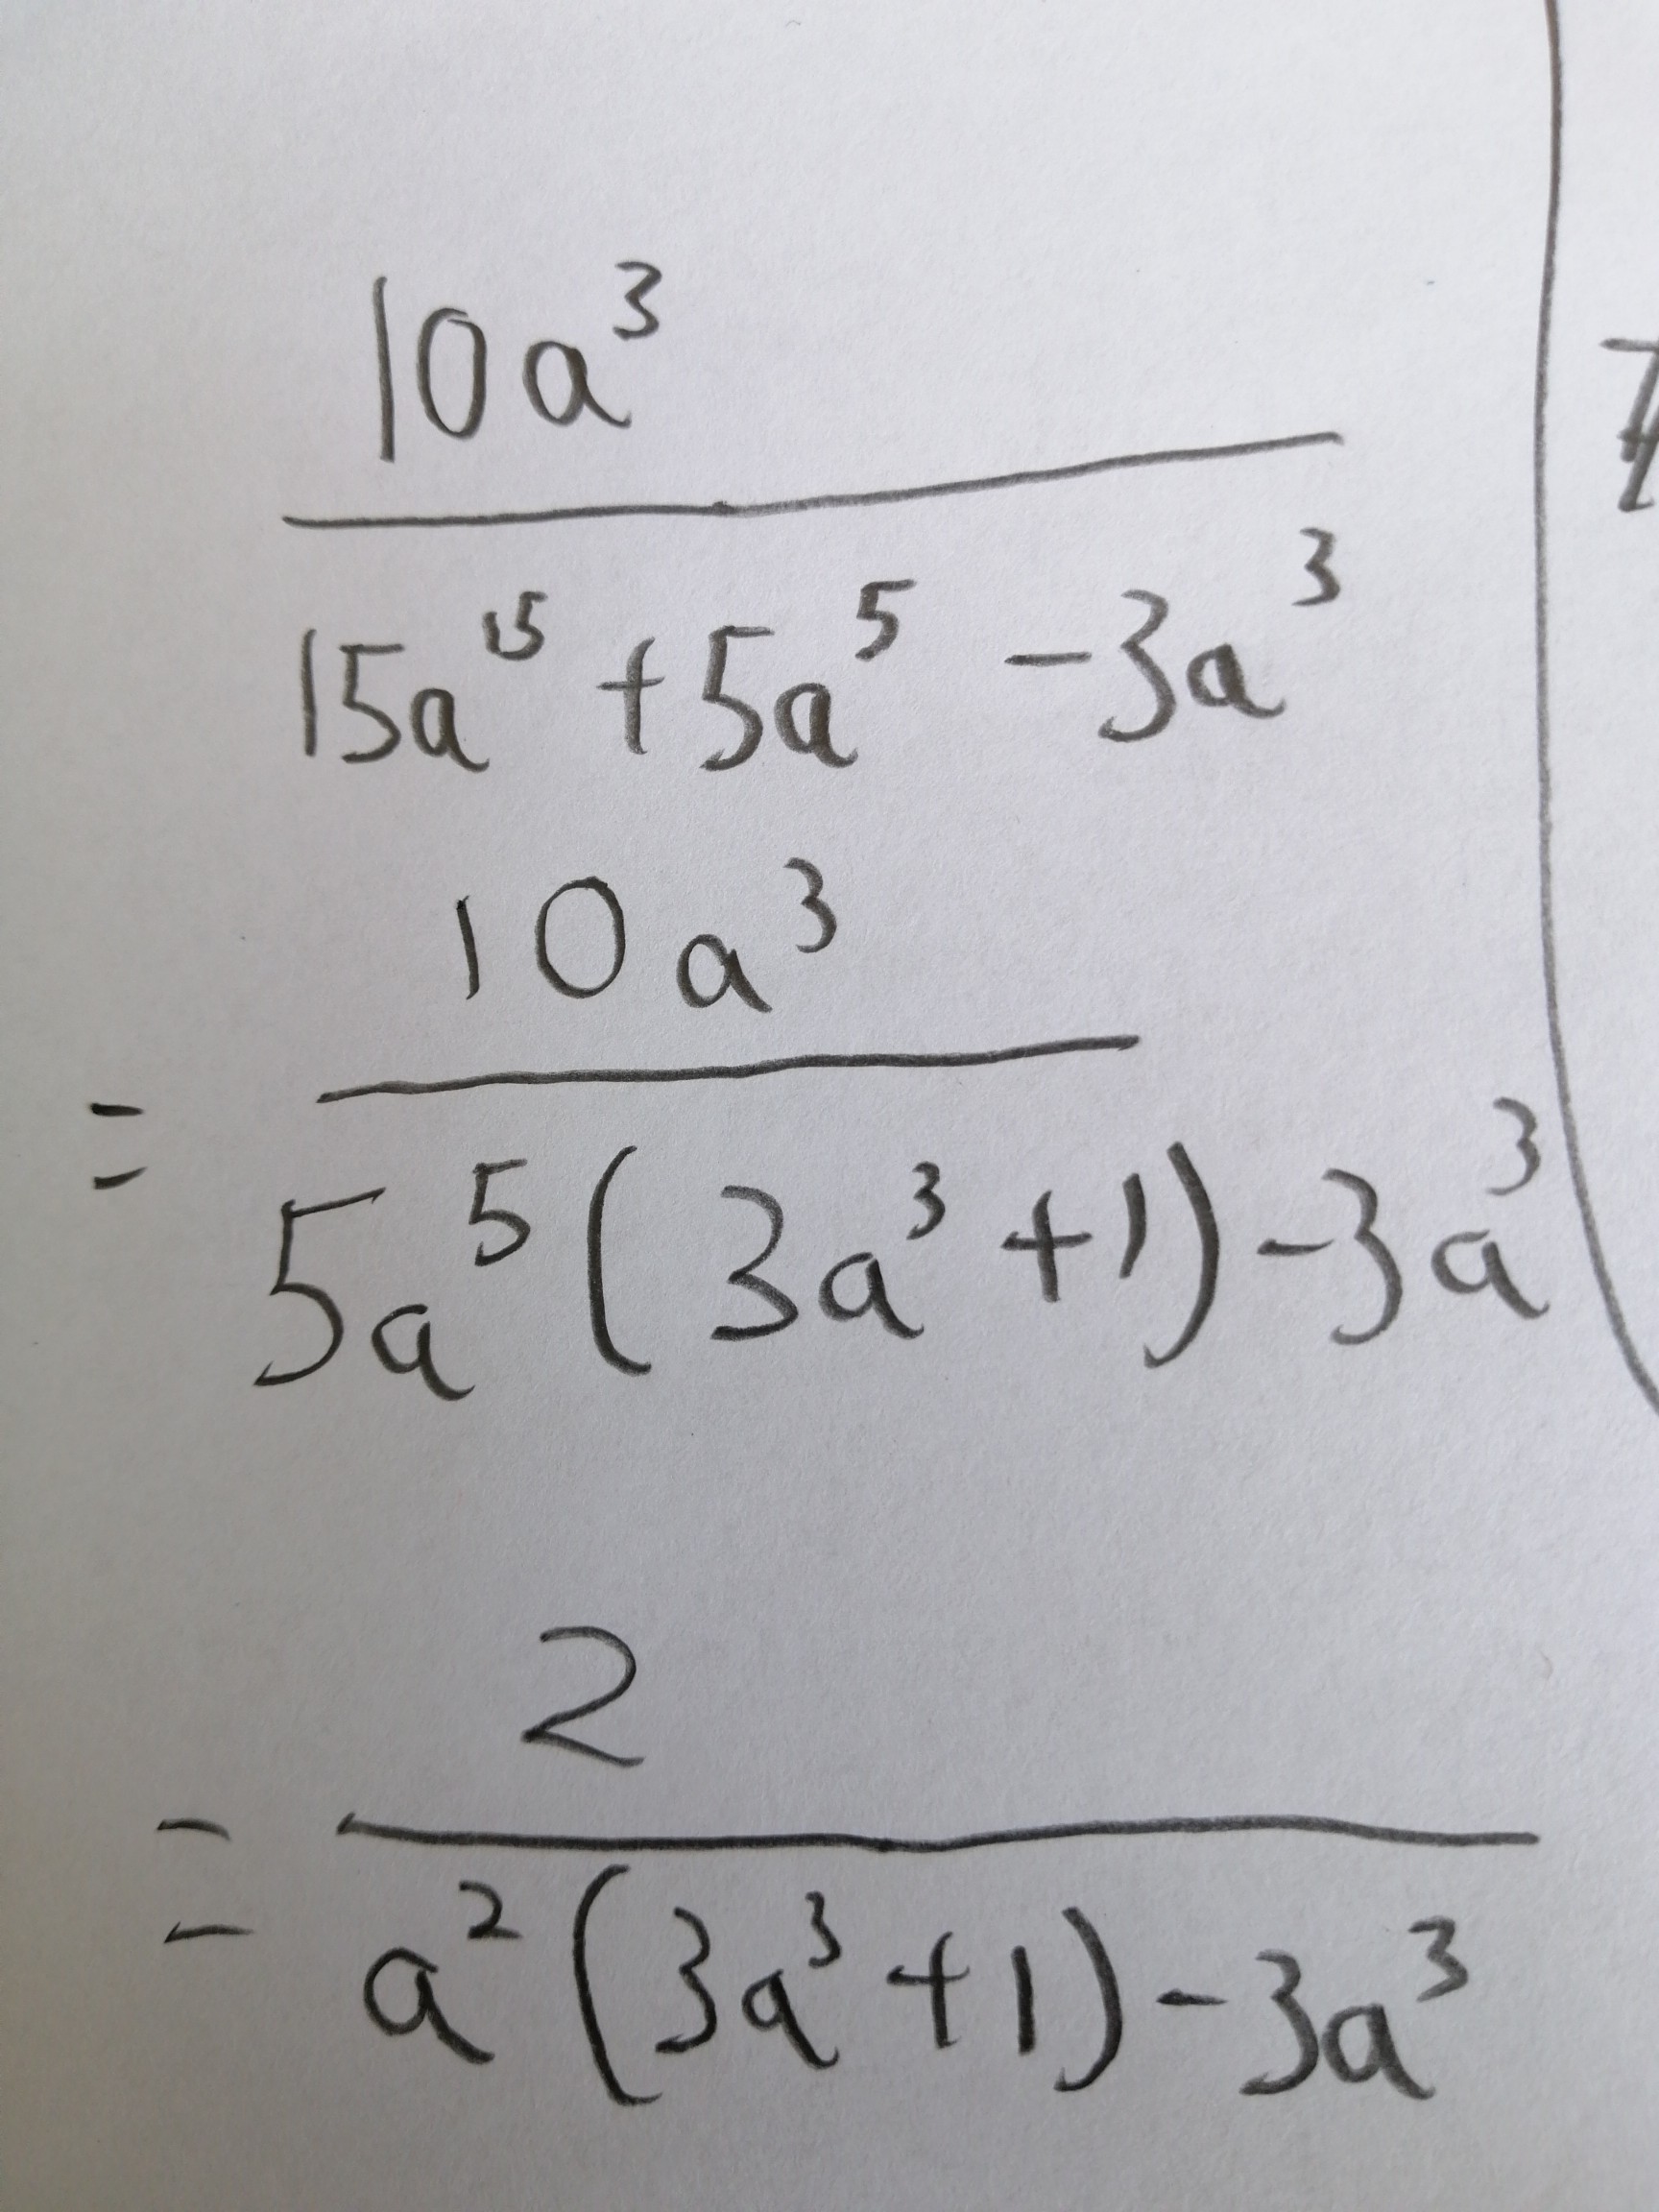 10a³
15a¹⁵ + 5a⁵ - 3a³
10a³
=
5a⁵(3a³+1)-3a³
2
=
a²(3a³+1)-3a³